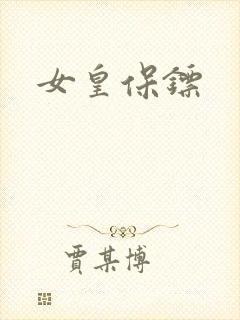 女皇保鏢
賈某博